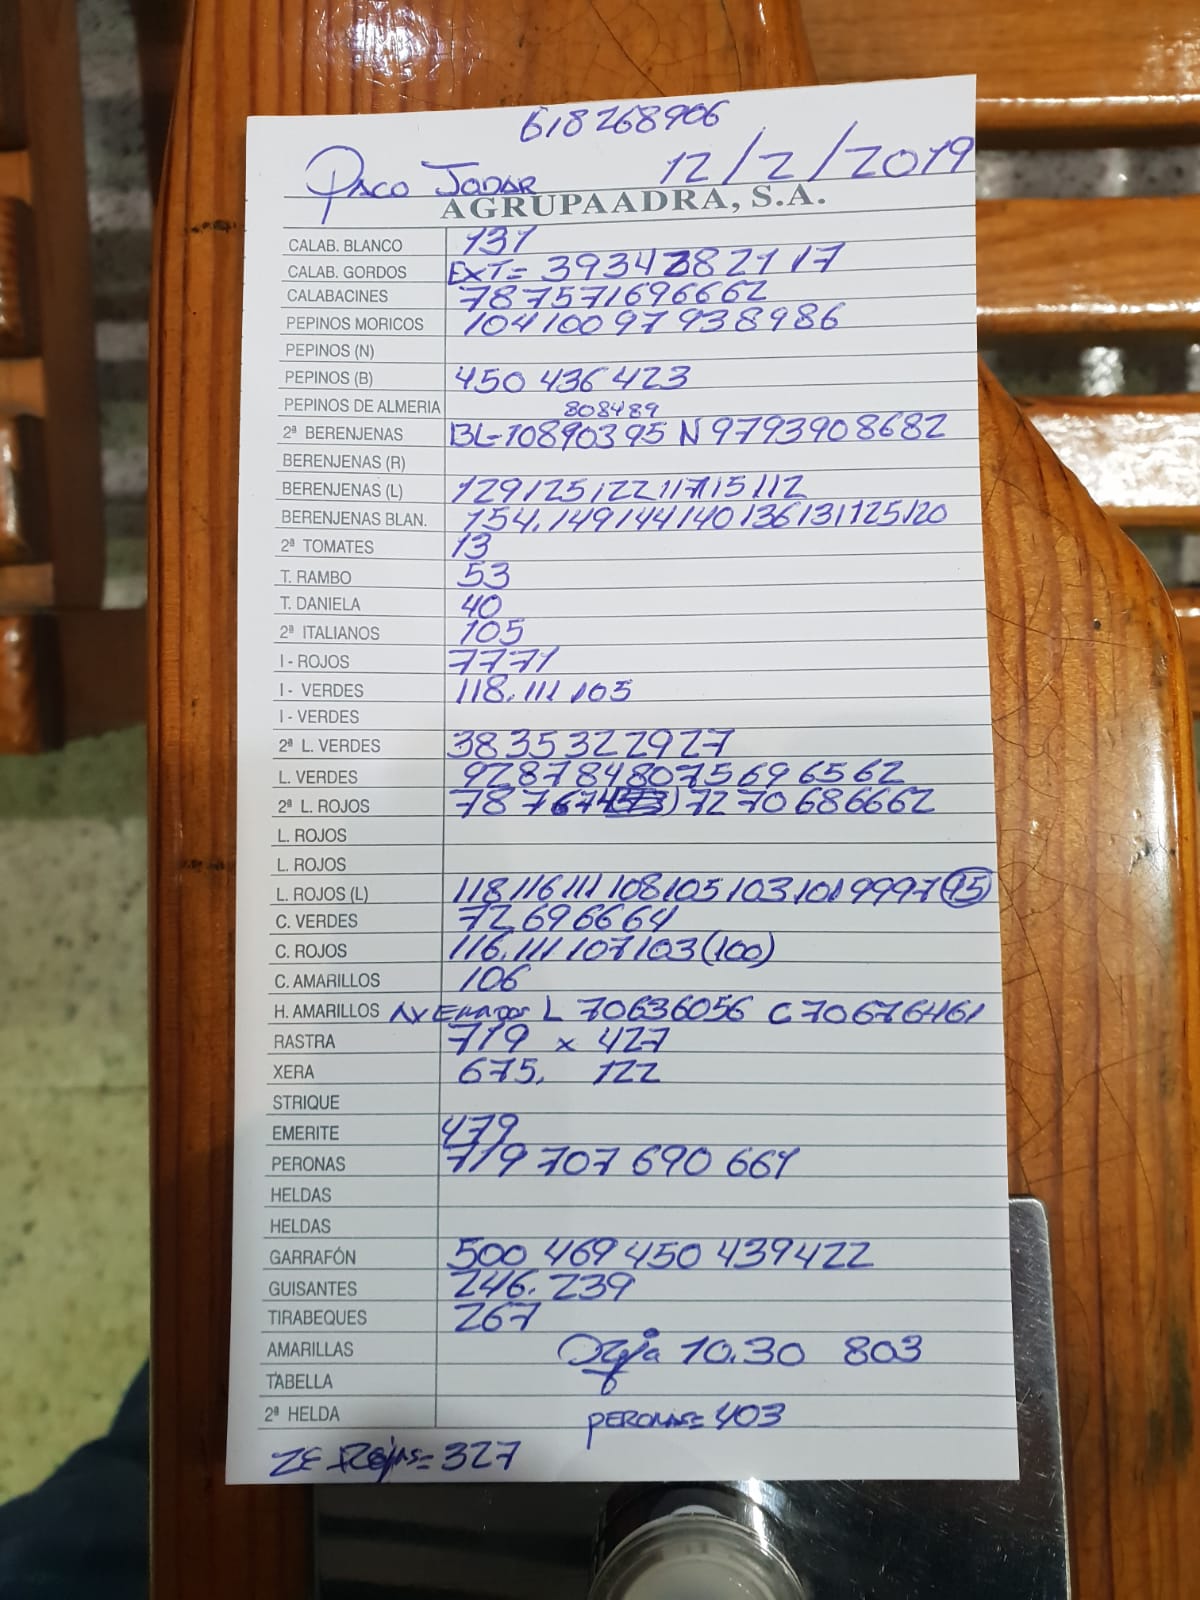 618268906
PACO JODAR 12/2/2019
AGRUPAADRA, S.A.
CALAB. BLANCO 131
CALAB. GORDOS EXT= 3934 382117
CALABACINES 787571696662
PEPINOS MORICOS 10410097 938986
PEPINOS (N)
PEPINOS (B) 450 436 423
PEPINOS DE ALMERIA 808489
2ª BERENJENAS BL-10890395 N 9793908682
BERENJENAS (R)
BERENJENAS (L) 129125122117115112
BERENJENAS BLAN. 154.149144140136131125120
2ª TOMATES 13
T. RAMBO 53
T. DANIELA 40
2ª ITALIANOS 105
I - ROJOS 7771
I - VERDES 118.111 105
I - VERDES
2ª L. VERDES 3835322927
L. VERDES 9287848075696562
2ª L. ROJOS 787674 7270686662
L. ROJOS
L. ROJOS
L. ROJOS (L) 118116111 108105103101 9997 95
C. VERDES 72696664
C. ROJOS 116.111 107103(100)
C. AMARILLOS 106
H. AMARILLOS L 70636056 C 70676461
RASTRA 719 x 427
XERA 675, 122
STRIQUE
EMERITE 479
PERONAS 719 707 690 661
HELDAS
HELDAS
GARRAFÓN 500 469 450 439 422
GUISANTES 246. 239
TIRABEQUES 267
AMARILLAS 10.30 803
TABELLA
2ª HELDA PERONAS= 403
ZE Rojas= 327